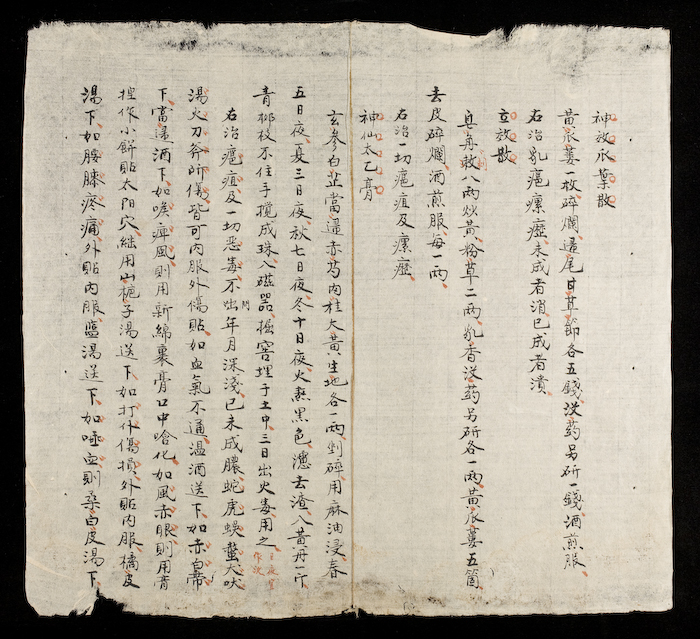 神效瓜蔞散
黃瓜蔞一枚碎爛當尾甘草節各五錢沒药另研一錢酒煎服
右治乳癰瘰癧未成者消已成者潰
立效散
皂角敕八兩炒黃粉草二兩乳香沒药另研各一兩黃瓜蔞五箇
去皮碎爛酒煎服每一兩
右治一切癰疽及瘰癧
神仙太乙膏
玄參白芷當歸赤芍肉桂大黃生地各一兩剉碎用麻油浸春
五日夜夏三日夜秋七日夜冬十日夜火熬黑色濾去渣入黃丹一斤
青柳枝不住手攪成珠入磁器掘窖埋于土中三日出火毒用之
右治癰疽及一切恶毒不問年月深淺已未成膿蛇虎蜈螫犬吠
湯火刀斧所傷皆可内服外傷貼如血氣不通温酒送下如赤白帶
下當歸酒下如喉痺風則用新綿裹膏口中噙化如風赤眼則用膏
捏作小餅貼太阳穴継用山梔子湯送下如打仆傷損外貼内服橘皮
湯下如腰膝疼痛外貼内服盬湯送下如唾血則桑白皮湯下